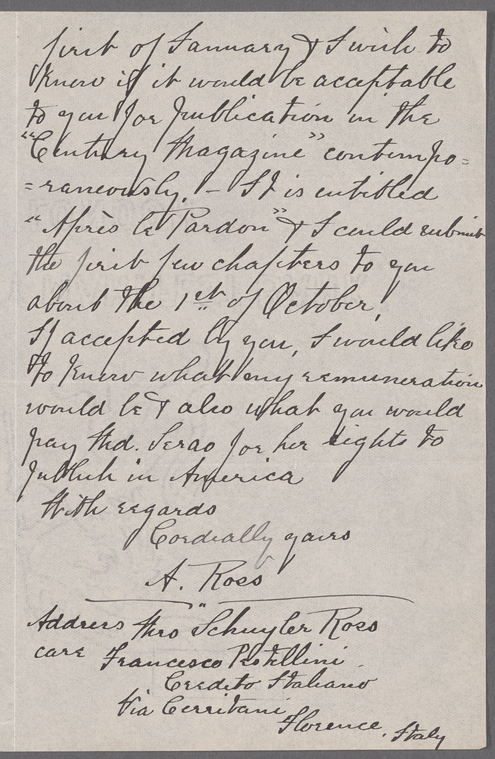 first of January & I wish to
know if it would be acceptable
to you for publication in the
"Century Magazine" contempo=
=raneously. - It is entitled
"Après le Pardon" & I could submit
the first few chapters to you
about the 1st of October.
If accepted by you, I would like
to know what my remuneration
would be & also what you would
pay Md. Serao for her rights to
publish in America
With regards
Cordially yours
A. Ross
Address Mrs "Schuyler Ross
care Francesco Pestellini.
Credito Italiano
Via Cerritani
Florence, Italy